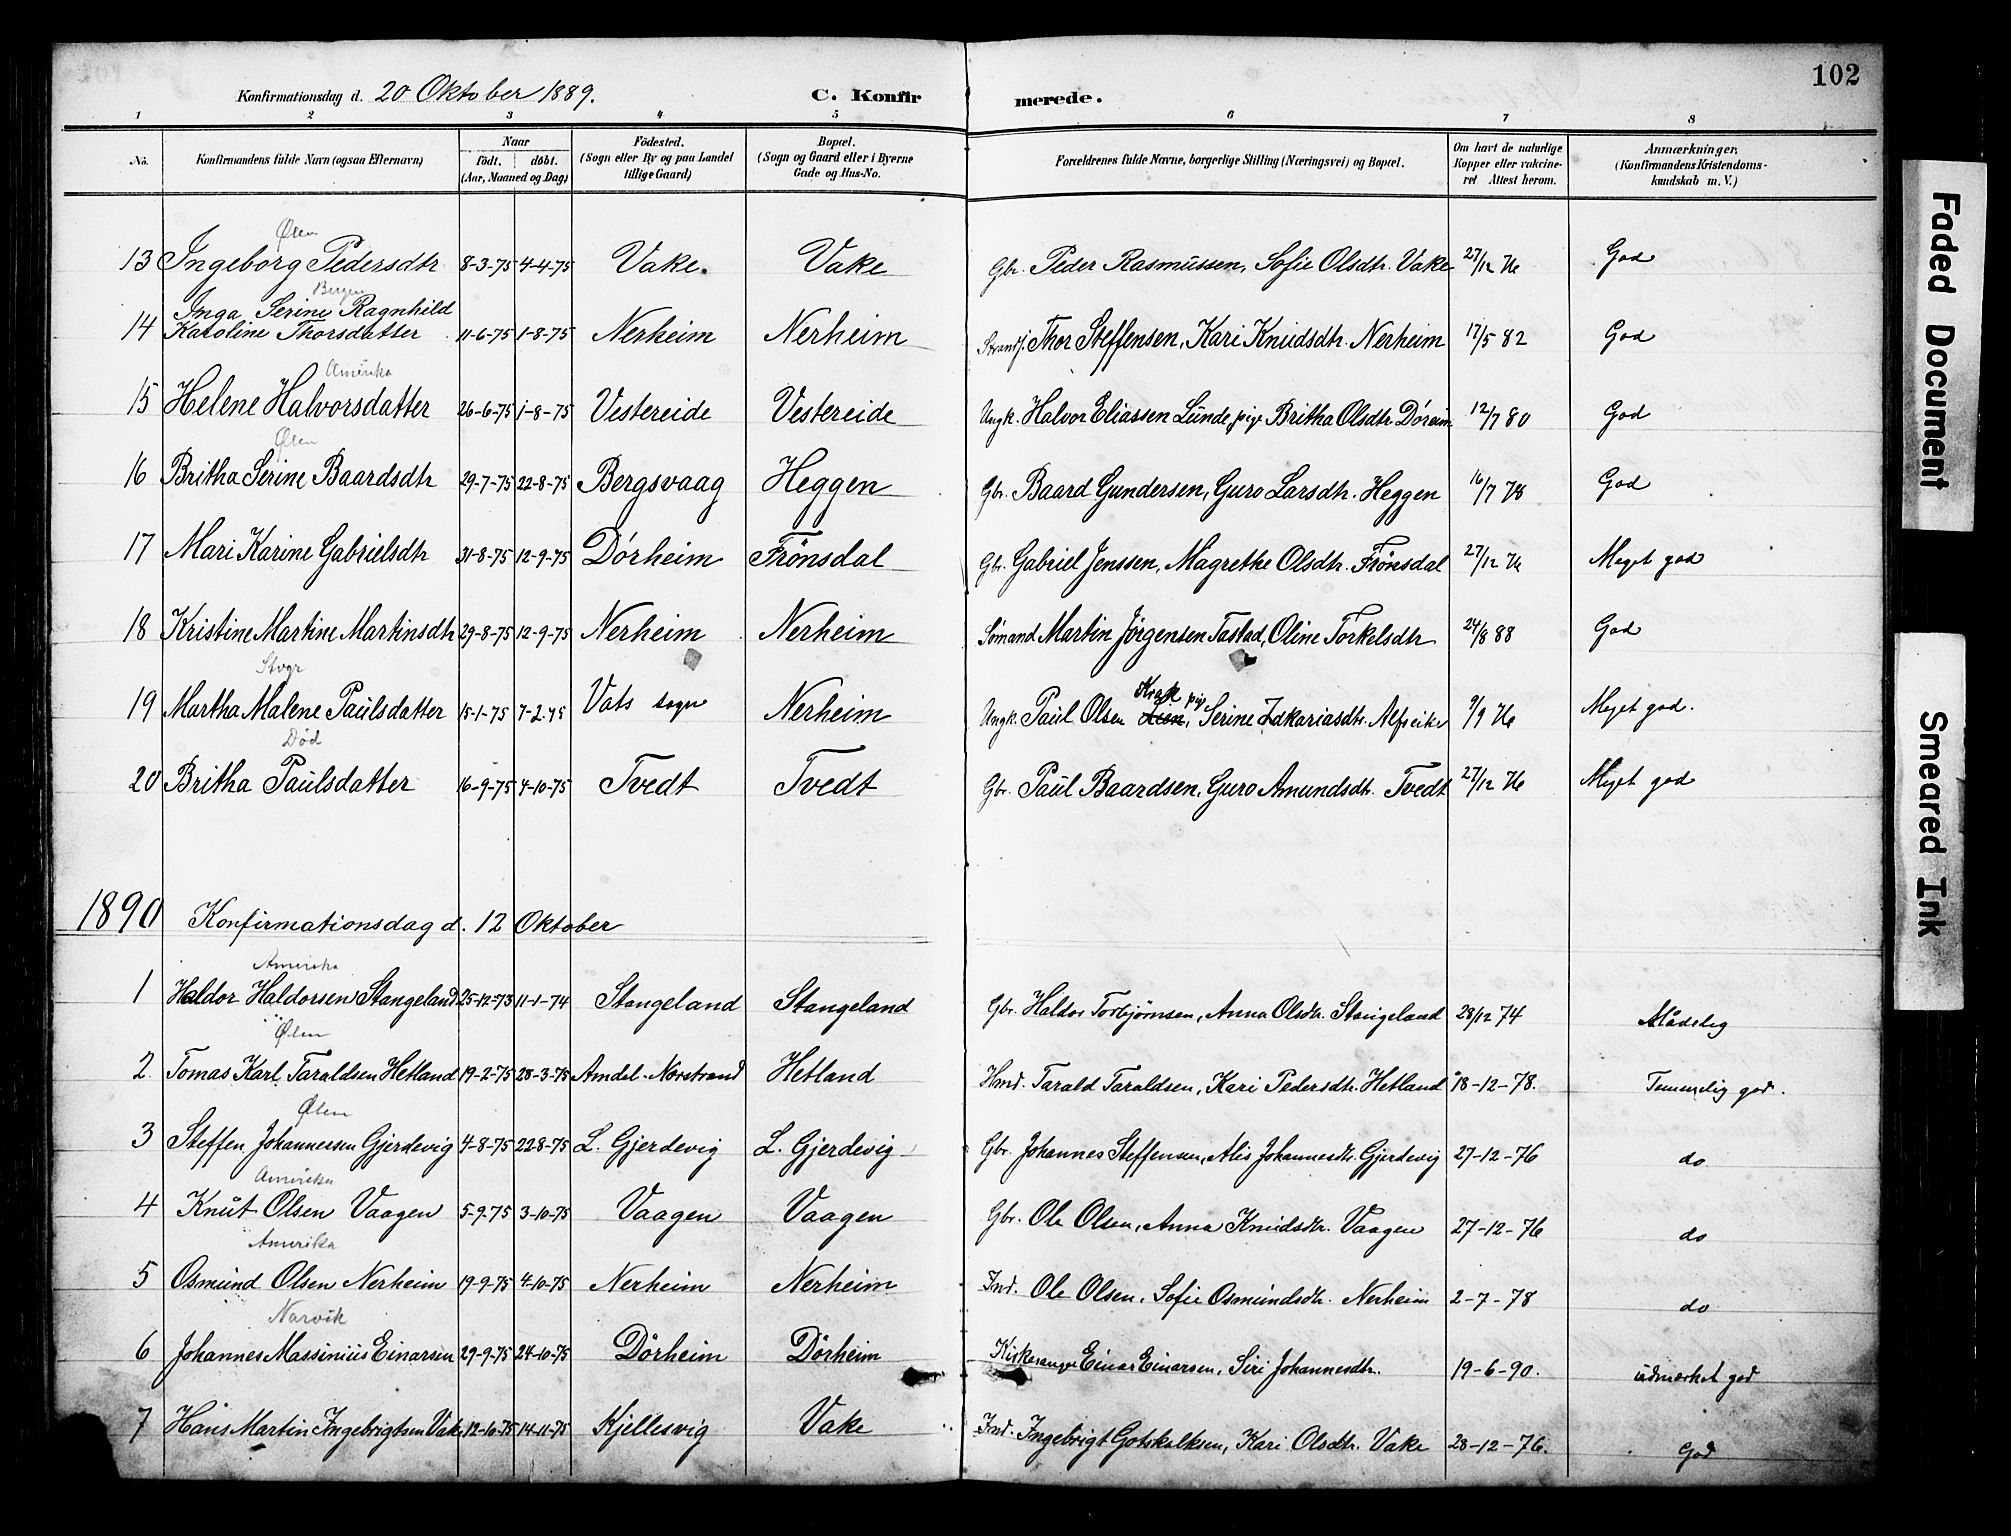 102
Konfirmationsdag d. 20 Oktober 1889. C. Konfirmerede.
1 2 3 4 5 6 7 8
No. Konfirmandens fulde Navn (ogsaa Efternavn) Naar födt. döbt. (Aar, Maaned og Dag) Födested. (Sogn eller By og paa Landet tillige Gaard) Bopæl. (Sogn og Gaard eller i Byerne Gade og Hus-No. Forældrenes fulde Navne, borgerlige Stilling (Næringsvei) og Bopæl. Om havt de naturlige Kopper eller vakcineret Attest herom. Anmærkninger. (Konfirmandens Kristendomskundskab m. V.)
Ølen
13 Ingeborg Pedersdtr 8-3-75 4-4-75 Vake. Vake Gbr. Peder Rasmussen, Sofie Olsdtr. Vake 27/12 76 God
Bergen
Inga Serine Ragnhild
14 Karoline Thorsdatter 11-6-75 1-8-75 Nerheim Nerheim Strands. Thor Steffensen, Kari Knudsdtr. Nerheim 17/5 82 God
Amerika
15 Helene Halvorsdatter 26-6-75 1-8-75 Vestereide Vestereide Ungk. Halvor Eliassen Lunde, pige Britha Olsdtr. Döreim 12/7 80 God
Ølen
16 Britha Serine Baardsdtr 29-7-75 22-8-75 Bergsvaag Heggen Gbr. Baard Gundersen, Guro Larsdtr. Heggen 16/7 78 God
17 Mari Karine Gabrielsdtr 31-8-75 12-9-75 Dórheim Frönsdal Gbr. Gabriel Jenssen, Magrethe Olsdtr. Frönsdal 27/12 76 Meget god
18 Kristine Martine Martinsdtr 29-8-75 12-9-75 Nerheim Nerheim Sömand Martin Jörgensen Tastad, Oline Torkelsdtr 24/8 88 God
Stvgr
19 Martha Malene Paulsdatter 15-1-75 7-2-75 Vats sogn Nerheim Ungk. Paul Olsen pige, Serine Zakariasdtr. 9/9 76 Meget god.
Död
20 Britha Paulsdatter 16-9-75 4-10-75 Tvedt Tvedt Gbr. Paul Baardsen, Guro Amundsdtr. Tvedt 27/12 76 Meget god
1890 Konfirmationsdag d. 12 Oktober
Amerika
1 Haldor Haldorsen Stangeland 25-12-73 11-1-74 Stangeland Stangeland Gbr. Haldor Torbjørnsen, Anna Olsdtr. Stangeland 28/12 74 Mådelig
Ølen
2 Tomas Karl Taraldsen Hetland 19-2-75 28-3-75 Amdal-Norstrand Hetland Hmd. Tarald Taraldsen, Kari Pedersdtr. Hetland 18-12-78. Temmelig god.
Ølen
3 Steffen Johannessen Gjerdevig 4-8-75 22-8-75 L. Gjerdevig L. Gjerdevig Gbr. Johannes Steffensen, Alis Johannesdtr. Gjerdevig 27-12-76 do
Amerika
4 Knut Olsen Vaagen 5-9-75 3-10-75 Vaagen Vaagen Gbr. Ole Olsen, Anna Knudsdtr. Vaagen 27-12-76 do
Amerika
5 Osmund Olsen Nerheim 19-9-75 4-10-75 Nerheim Nerheim Ind. Ole Olsen, Sofie Osmundsdtr. Nerheim 2-7-78 do
Narvik
6 Johannes Massinius Einarsen 29-9-75 24-10-75 Dörheim Dörheim Kirkesanger Einar Einarsen, Siri Johannesdtr. 19-6-90. udmærket god
7 Hans Martin Ingebrigtsen Vake 12-10-75 14-11-75 Kjellesvig Vake Ind. Ingebrigt Gotskalksen, Kari Olsdtr. Vake 28-12-76. God
Faded Document
Smeared Ink